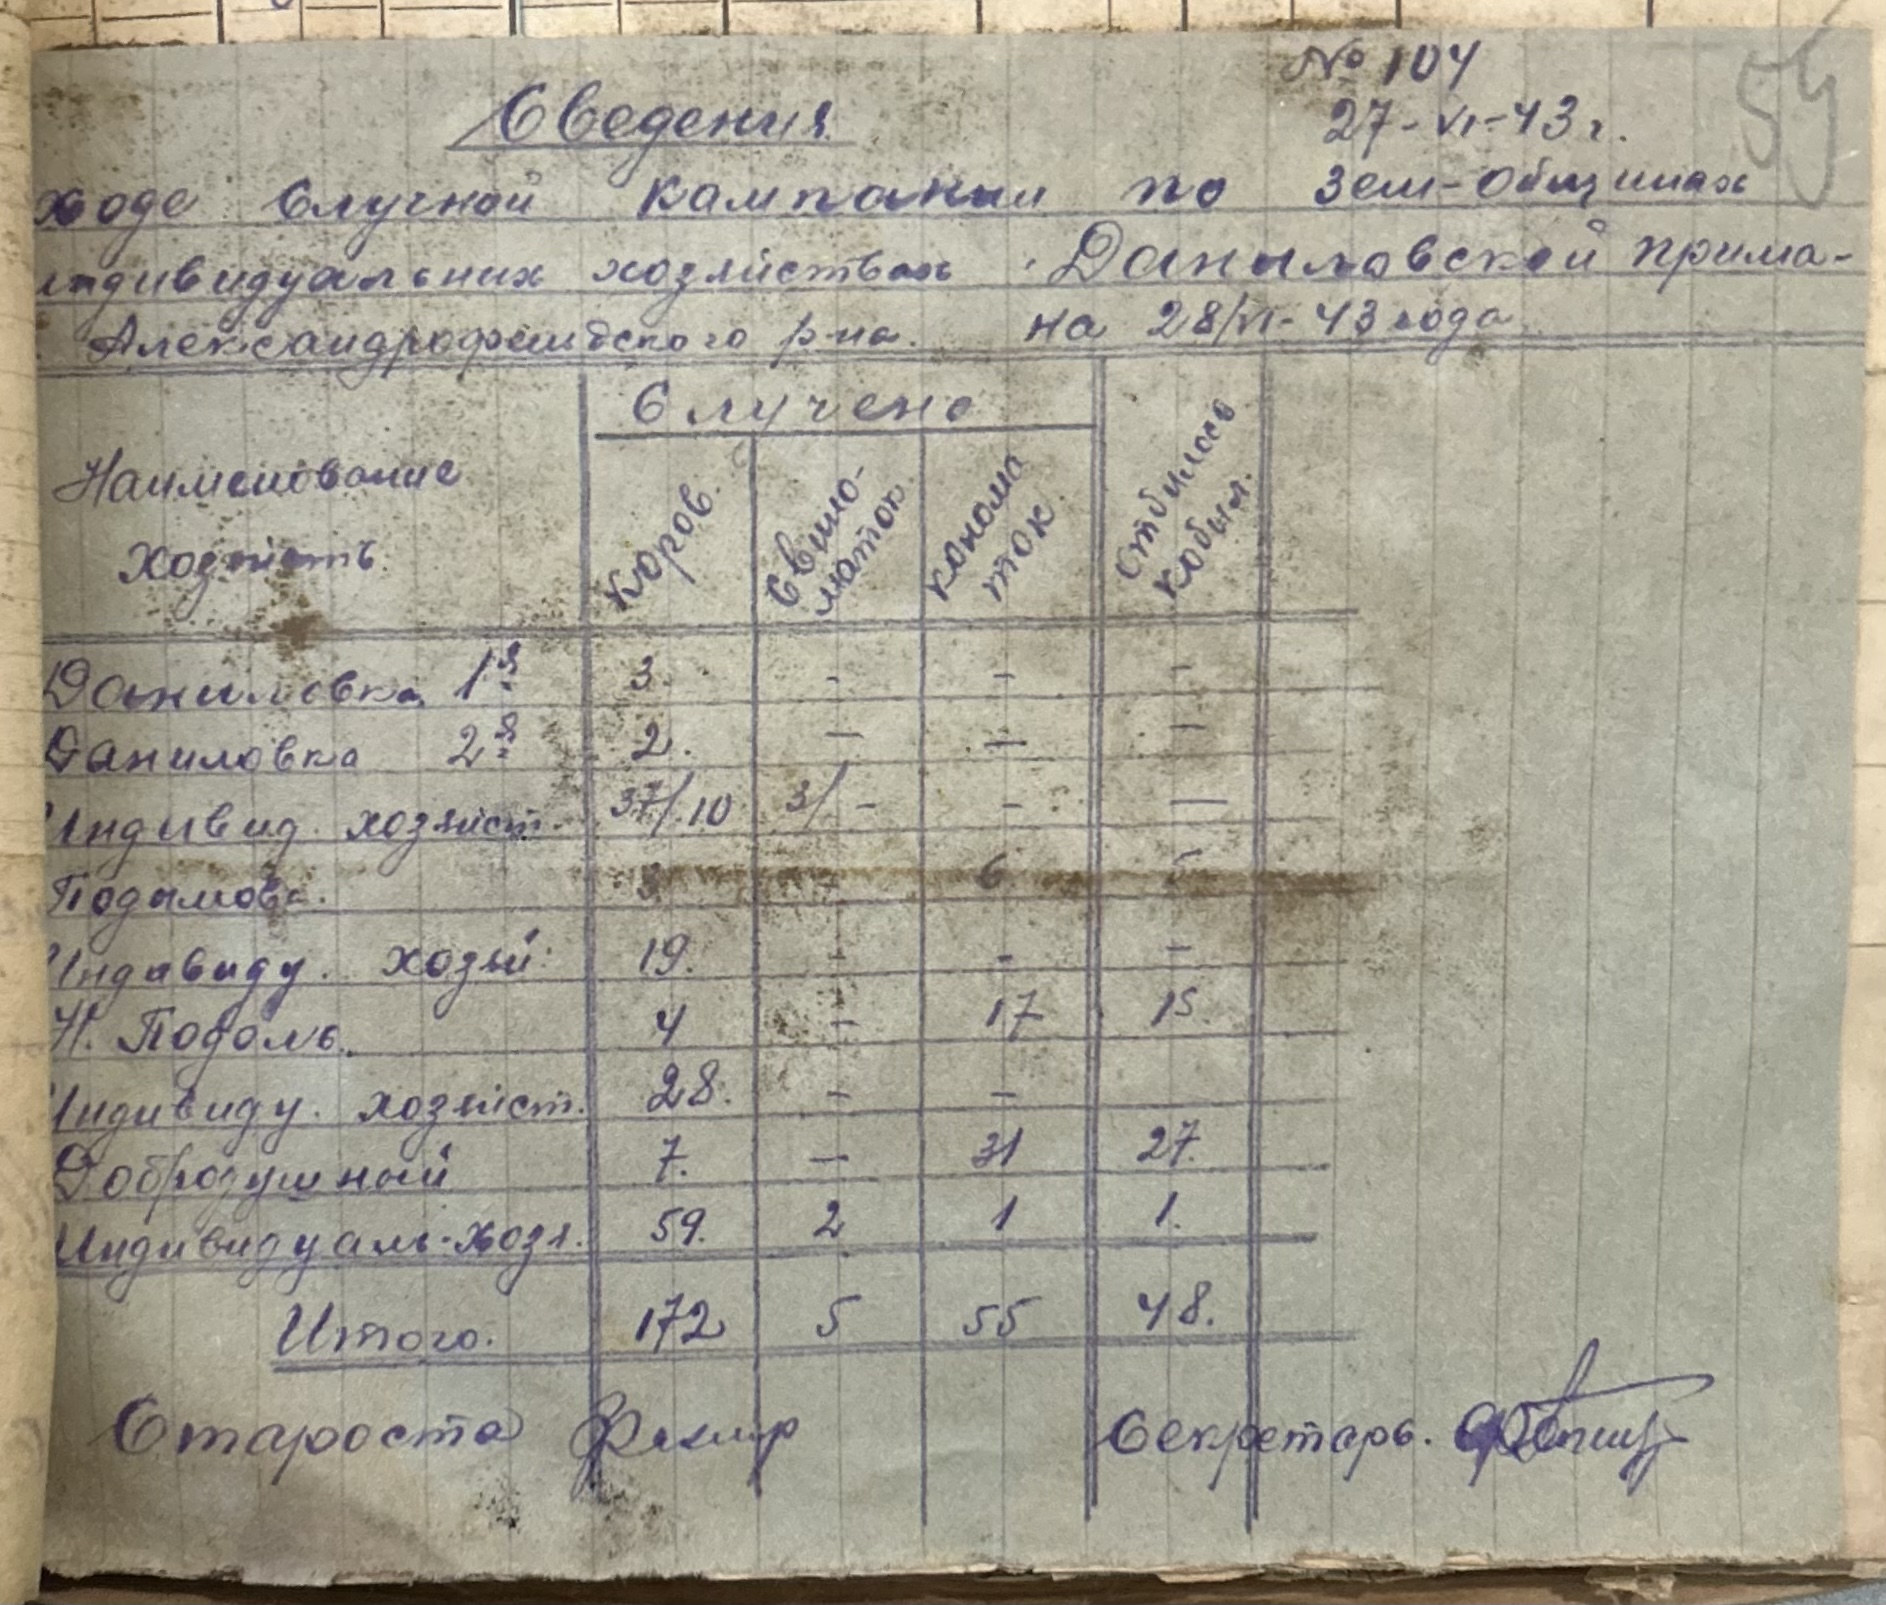 № 104
54
Сведения
27-VI-43 г.
ходе Случной кампании по Зем-Общинах
индивидуальних хозяйствах Даниловской прима-
Александрофельдского р-на. на 28/VI-43 года
Наименование хозяйств
Случено
Коров.
Свино-маток
конома ток
Отбилось кобыл.
Даниловка 1я 3. - - -
Даниловка 2я 2. — — —
Индивид. хозяйст. 37/10 3/- - —
Подымова. 3 - 6 5
Индивиду. хозяй: 19. - - -
Н. Подоль. 4 - 17 15.
Индивиду. хозяйст. 28. - -
Добродушный 7. — 31 27.
Индивидуаль-хозя. 59. 2 1 1.
Итого. 172 5 55 48.
Староста Секретарь.